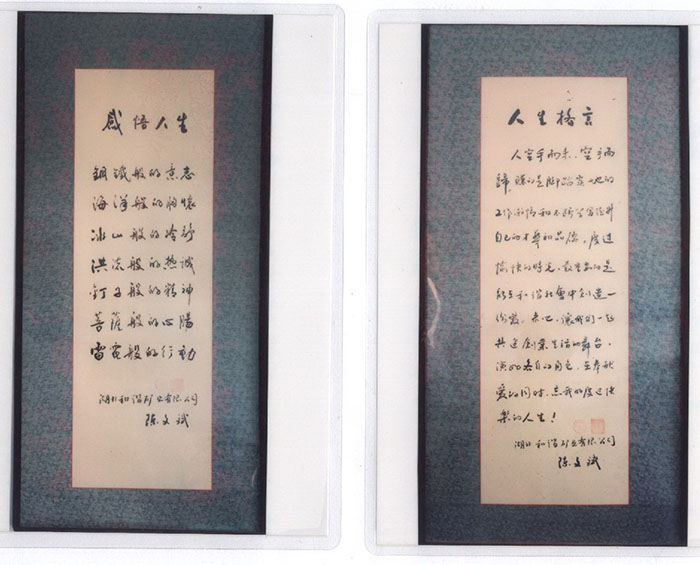 感悟人生
钢铁般的意志
海洋般的胸怀
冰山般的冷静
洪流般的热诚
钉子般的精神
菩萨般的心肠
雷电般的行动
湖北和谐矿业有限公司
陈文斌
人生格言
人空手而来,空手而
歸,
工作激情和不断学习
自己的才华和品德,度过
愉快的时光,最重要的是
能在和谐社會中创造一
份爱。来吧,讓我们一起
共建创業生活的舞台,
演好各自的角色,在奉献
爱的同时,忘我的度过快
樂的人生!
湖北和谐矿业有限公司
陈文斌